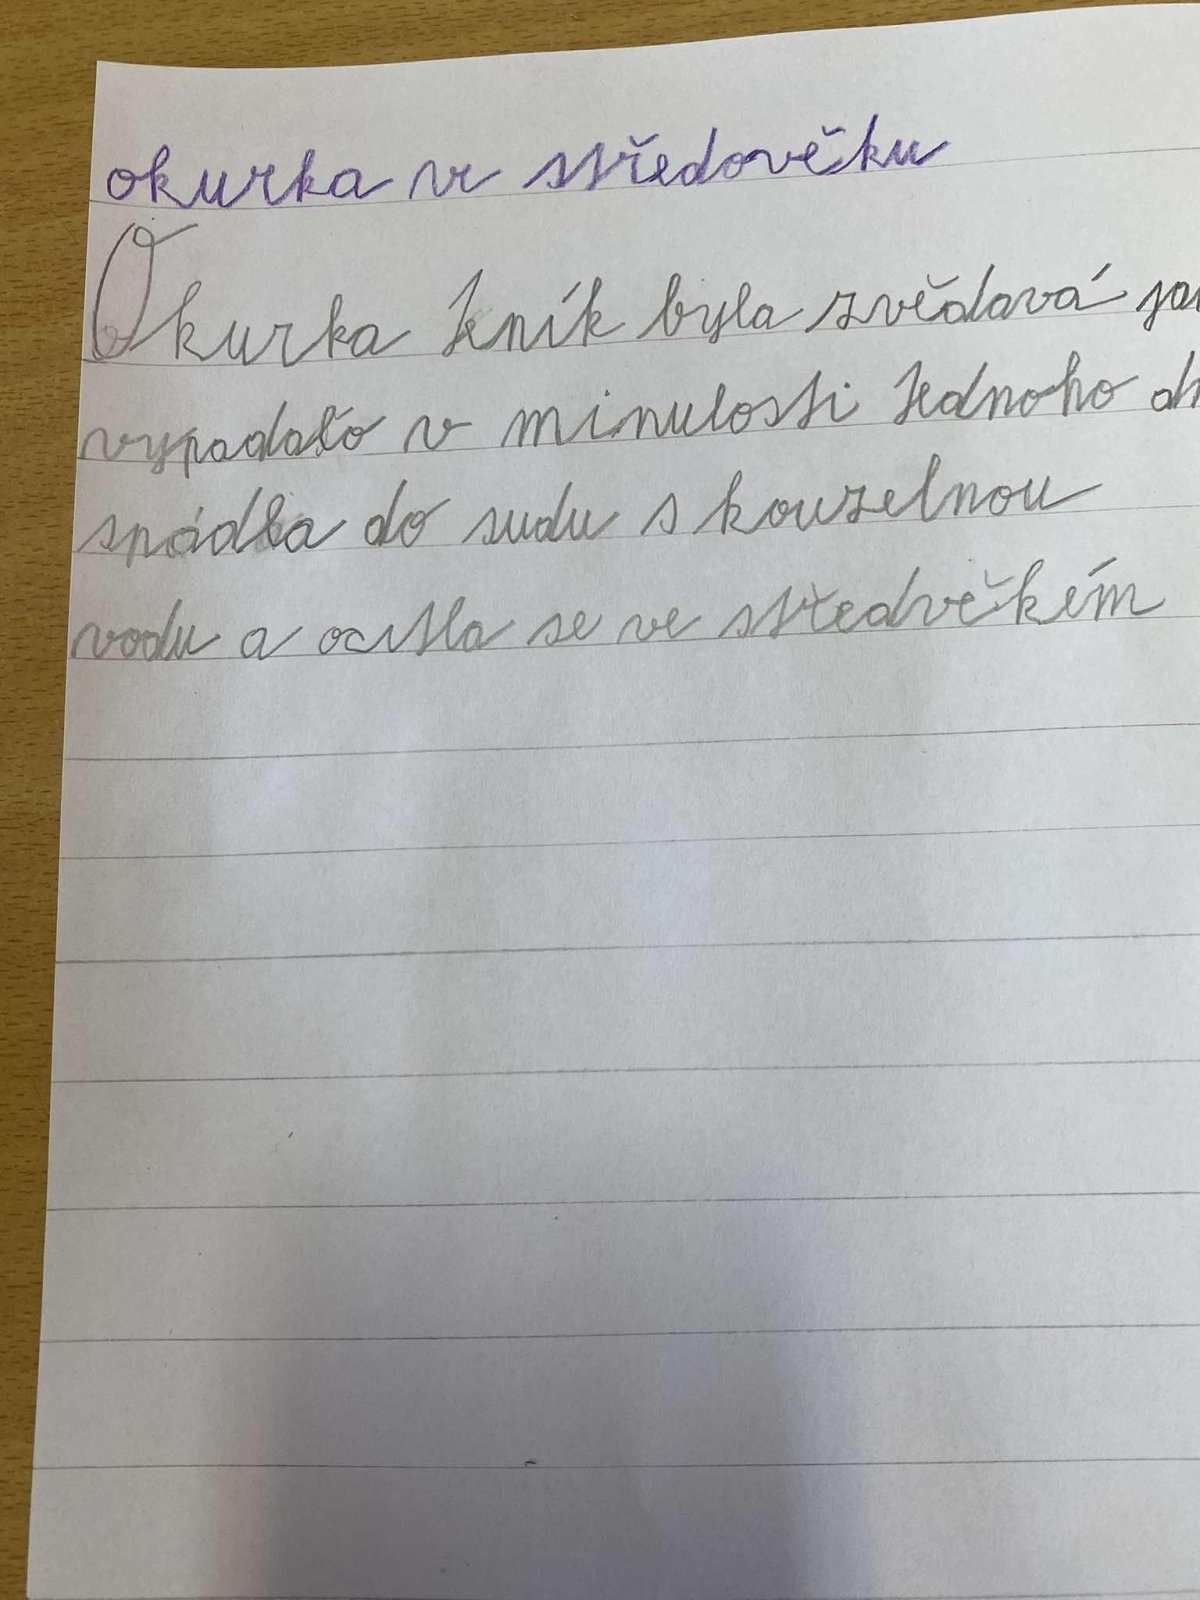 okurka v středověku
Okurka Jeník byla zvědavá
vypadalo v minulosti Jednoho
spádla do sudu s kouzelnou
vodu a ocitla se ve středvěkém